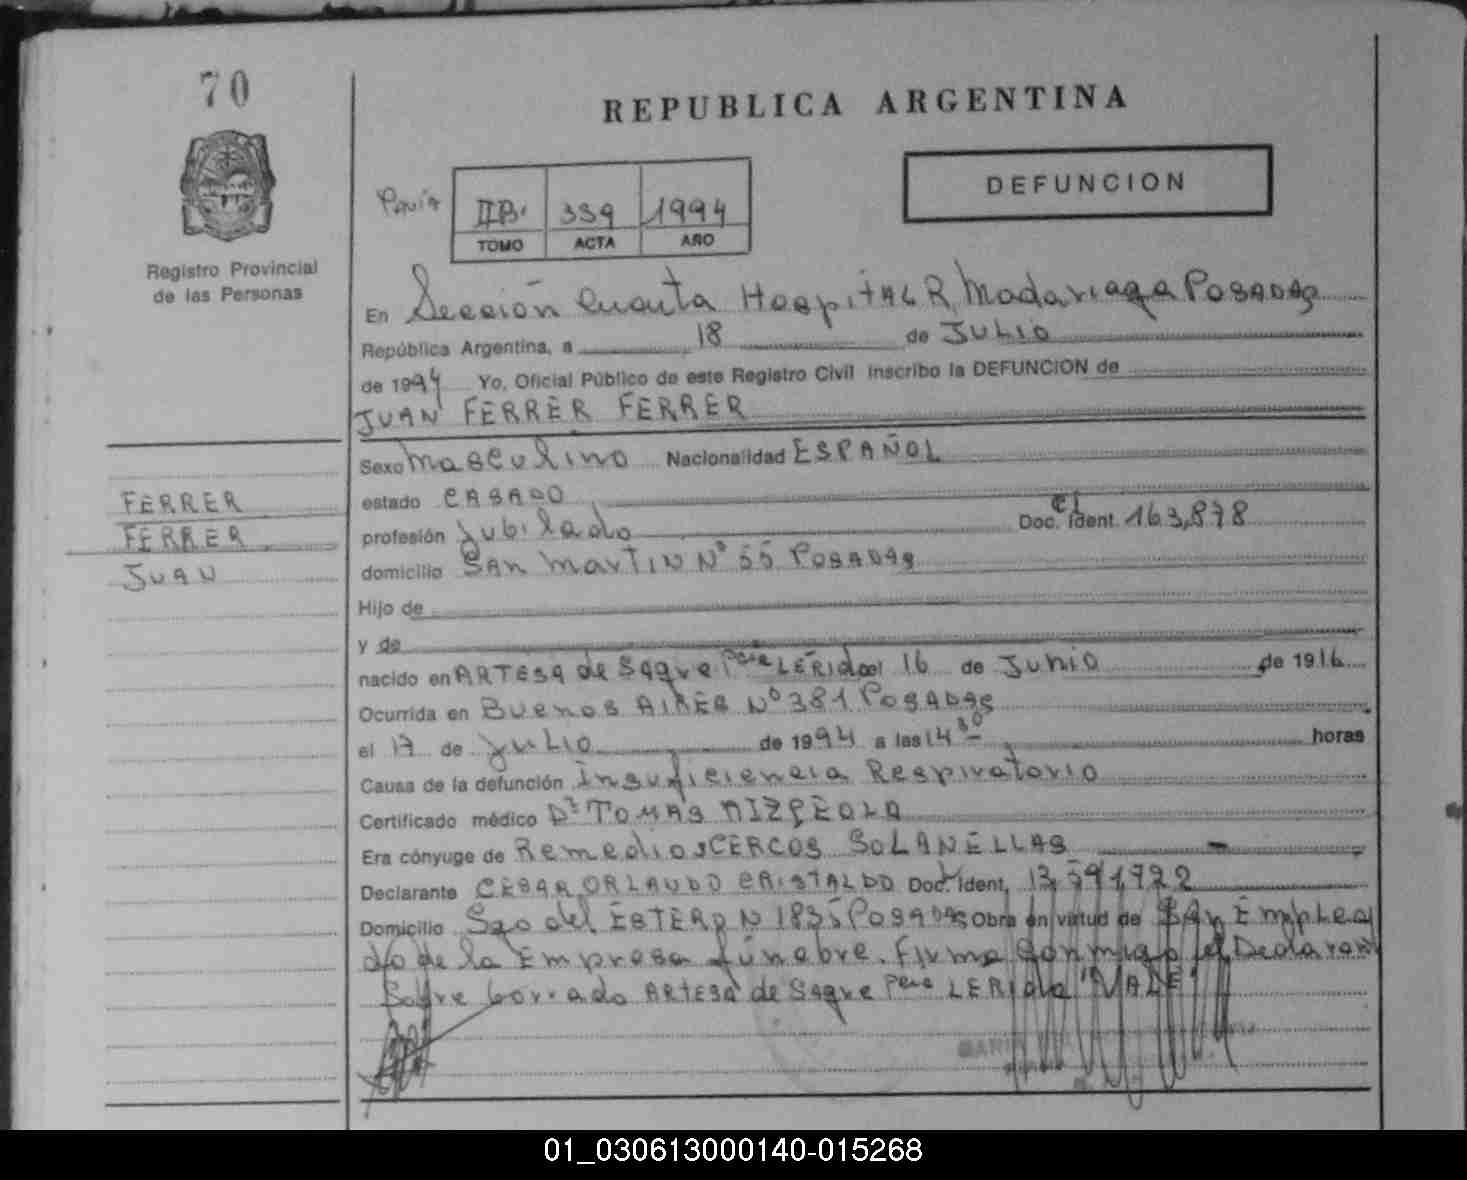 70
REPUBLICA ARGENTINA
DEFUNCION
IIB. 339 1994
TOMO ACTA AÑO
Registro Provincial
de las Personas
En Sección Cuarta Hospital R. Madariaga Posadas
República Argentina, a 18 de JULIO
de 1994 Yo, Oficial Público de este Registro Civil inscribo la DEFUNCION de
JUAN FERRER FERRER
Sexo Masculino Nacionalidad ESPAÑOL
FERRER
FERRER
JUAN
estado CASADO
profesión Jubilado Doc. Ident. CI 163,878
domicilio San Martin Nº 55 Posadas
Hijo de
y de
nacido en ARTESA de Segre Pcia LERIDA el 16 de Junio de 1916
Ocurrida en Buenos Aires Nº 381 Posadas
el 17 de Julio de 1994 a las 14 30 horas
Causa de la defunción Insuficiencia Respiratorio
Certificado médico Dr TOMAS
Era cónyuge de Remedios CERCOS SOLANELLAS
Declarante CESAR ORLANDO CRISTALDO Doc. Ident. 13,591,722
Domicilio Sgo del ESTERO N 1835 Posadas Obra en virtud de Emplea
do de la Empresa fúnebre. Firma conmigo el Declarant
Sobre borrado ARTESA de Segre Pcia LERIDA "VALE"
01_030613000140-015268